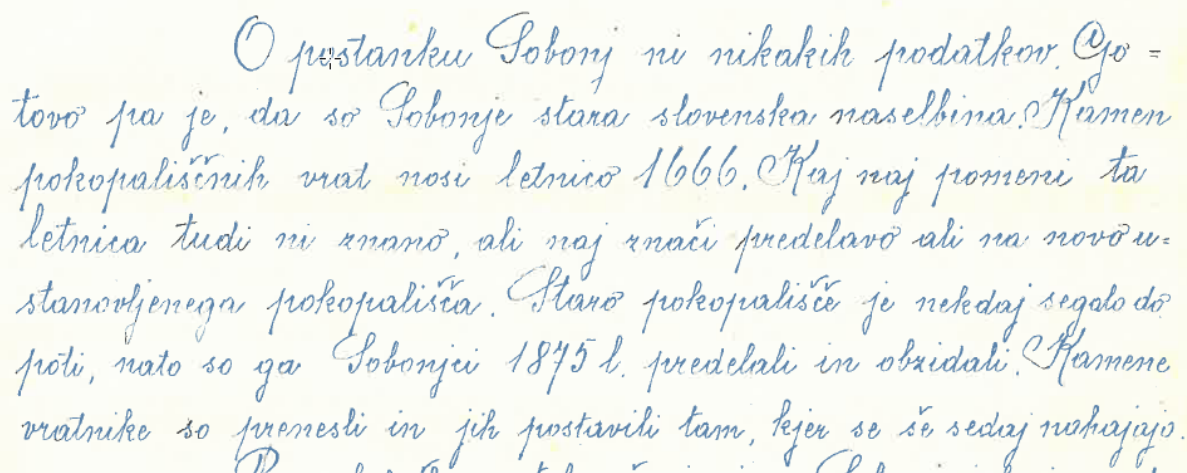 O postanku Sobonj ni nikakih podatkov. Go=
tovo pa je, da so Sobonje stara slovenska naselbina. Kamen
pokopališčnih vrat nosi letnico 1666. Kaj naj pomeni ta
letnica tudi ni znano, ali naj znači predelavo ali na novo u=
stanovljenega pokopališča. Staro pokopališče je nekdaj segalo do
poti, nato so ga Sobonjci 1875 l. predelali in obzidali. Kamene
vratnike so prenesli in jih postavili tam, kjer se še sedaj nahajajo.